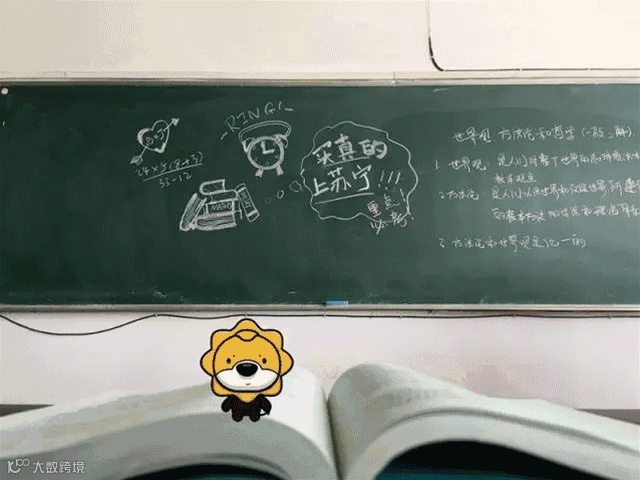 RING!
24×5(8+3)
35-12
MATHS
买真的
上苏宁!!!
重点!
必考!
世界观 方法论和哲学(一般、
1. 世界观: 是人们对整个世界的
根本观点
2. 方法论: 是人们认识世界和改造世界的
3. 方法论和世界观是统一的
大数跨境